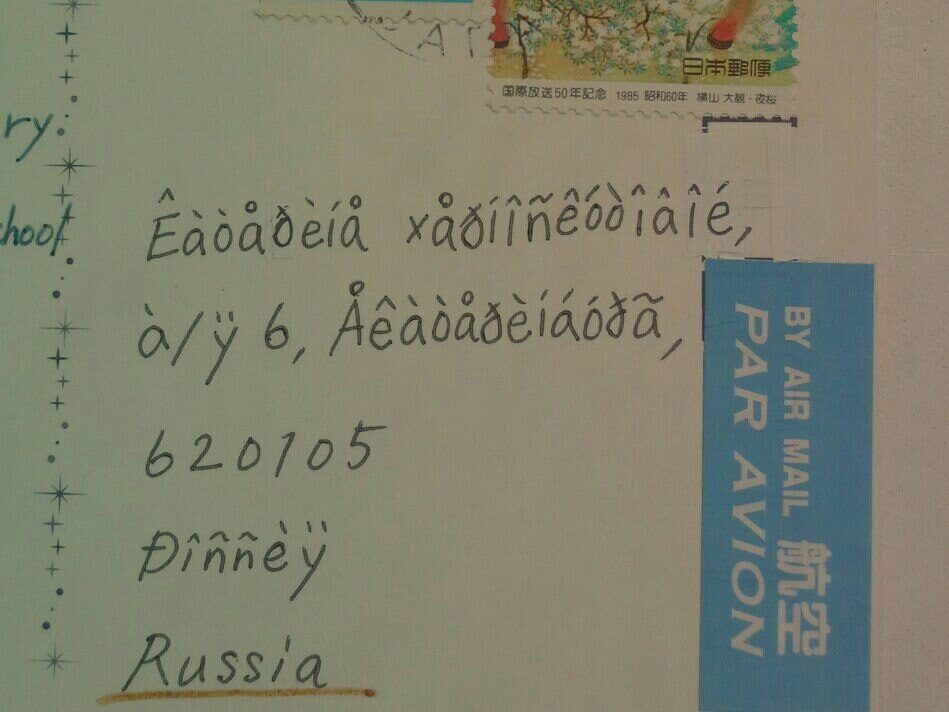 日本郵便
国際放送50年記念 1985 昭和60年 横山 大観・夜桜
Êàòåðèíå ×åðíîñêóòîâîé,
à/ÿ 6, Åêàòåðèíáóðã,
620105
Ðîññèÿ
Russia
BY AIR MAIL 航空
PAR AVION